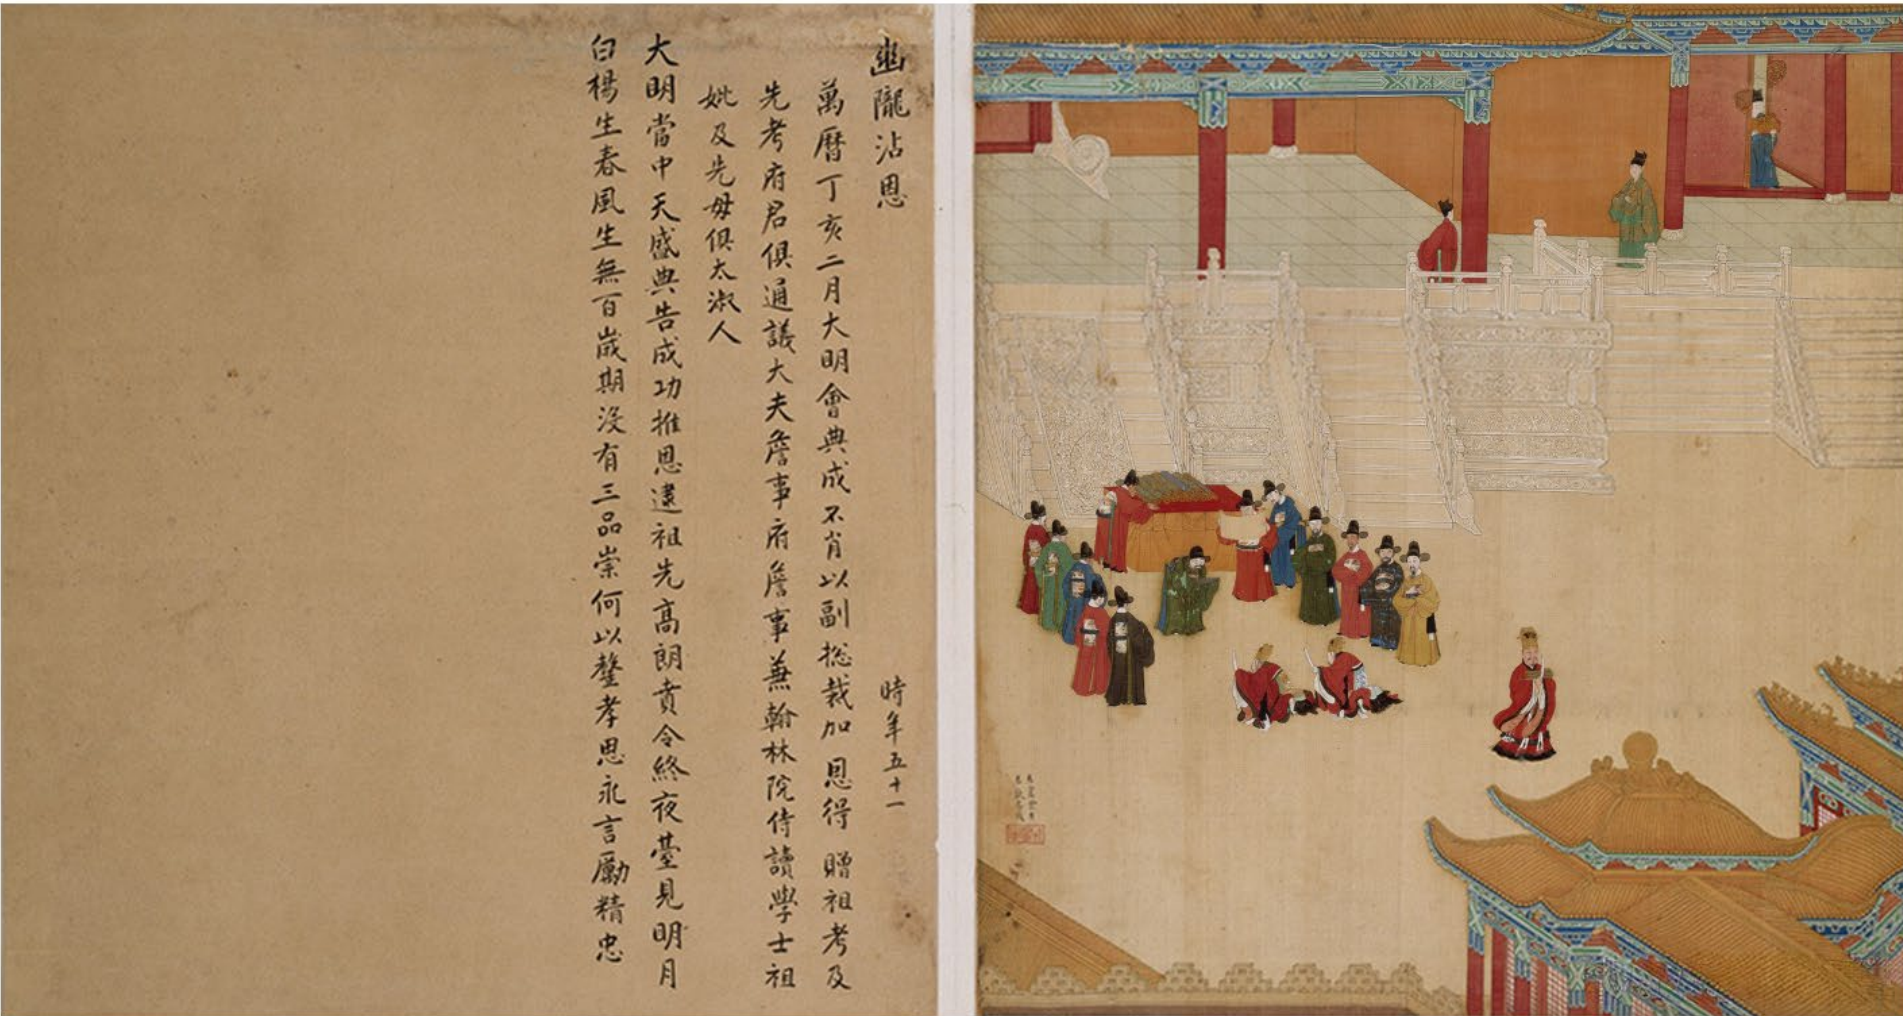 幽隴沾恩
時年五十一
萬曆丁亥二月大明會典成不肖以副總裁加恩得贈祖考及
先考府君俱通議大夫詹事府詹事兼翰林院侍讀學士祖
妣及先母俱太淑人
大明當中天盛典告成功推恩逮祖先高朗賁令終夜臺見明月
白楊生春風生無百歲期沒有三品崇何以罄孝思永言勵精忠